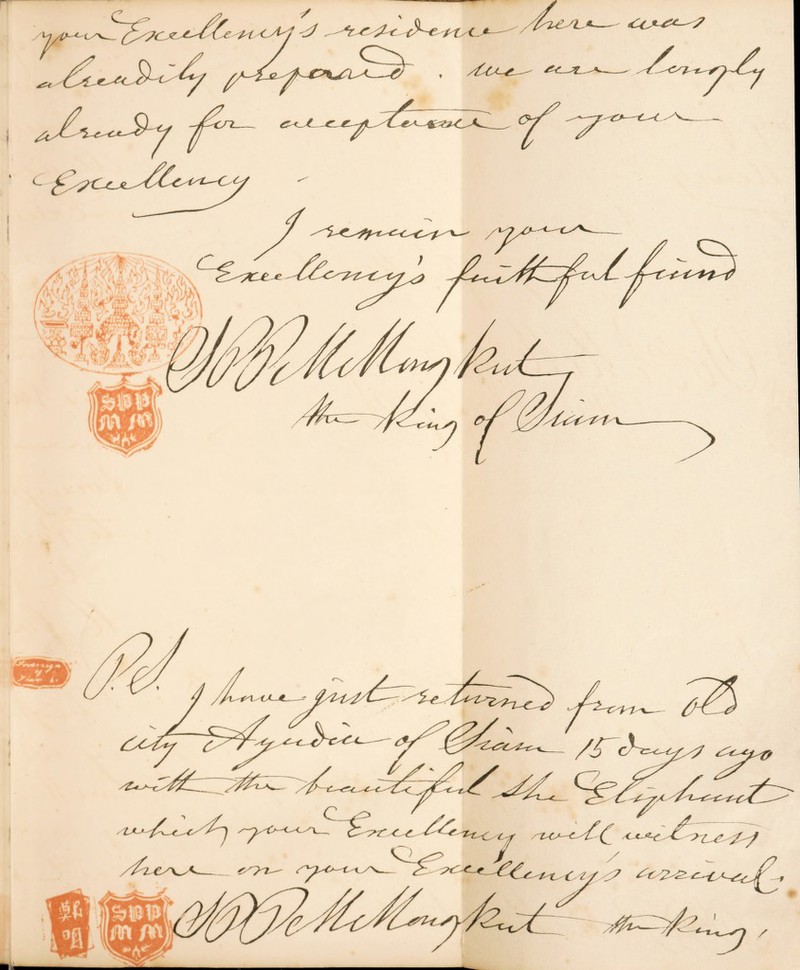 your Excellency's residence here was
alreadily prepared. we are longly
already for acceptance of your
Excellency
I remain your
Excellency's faithful friend
SPPM Mongkut
the King of Siam
SPP
MM
P.S. I have just returned from old
city Ayudia of Siam 15 days ago
with the beautiful she Eliphant
which your Excellency will witness
here on your Excellency's arrival.
鄭
明
SPP
MM
SPPM Mongkut the King,